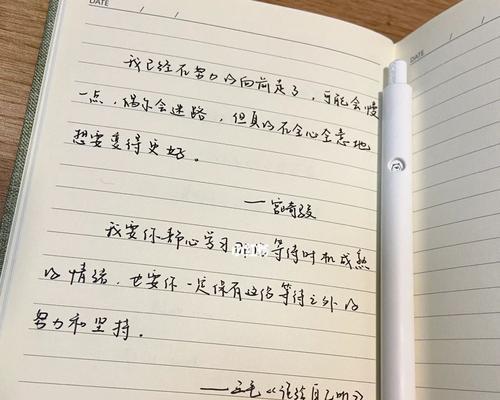 DATE / /
DATE
我已经在努力的向前走了，可能会慢
一点，偶尔会迷路，但真的在全心全意地
想要变得更好。
——宫崎骏
我要你静心学习 等待时机成熟
的情绪，也要你一定保有这份等待之外的
努力和坚持。
——三毛《说给自己听》